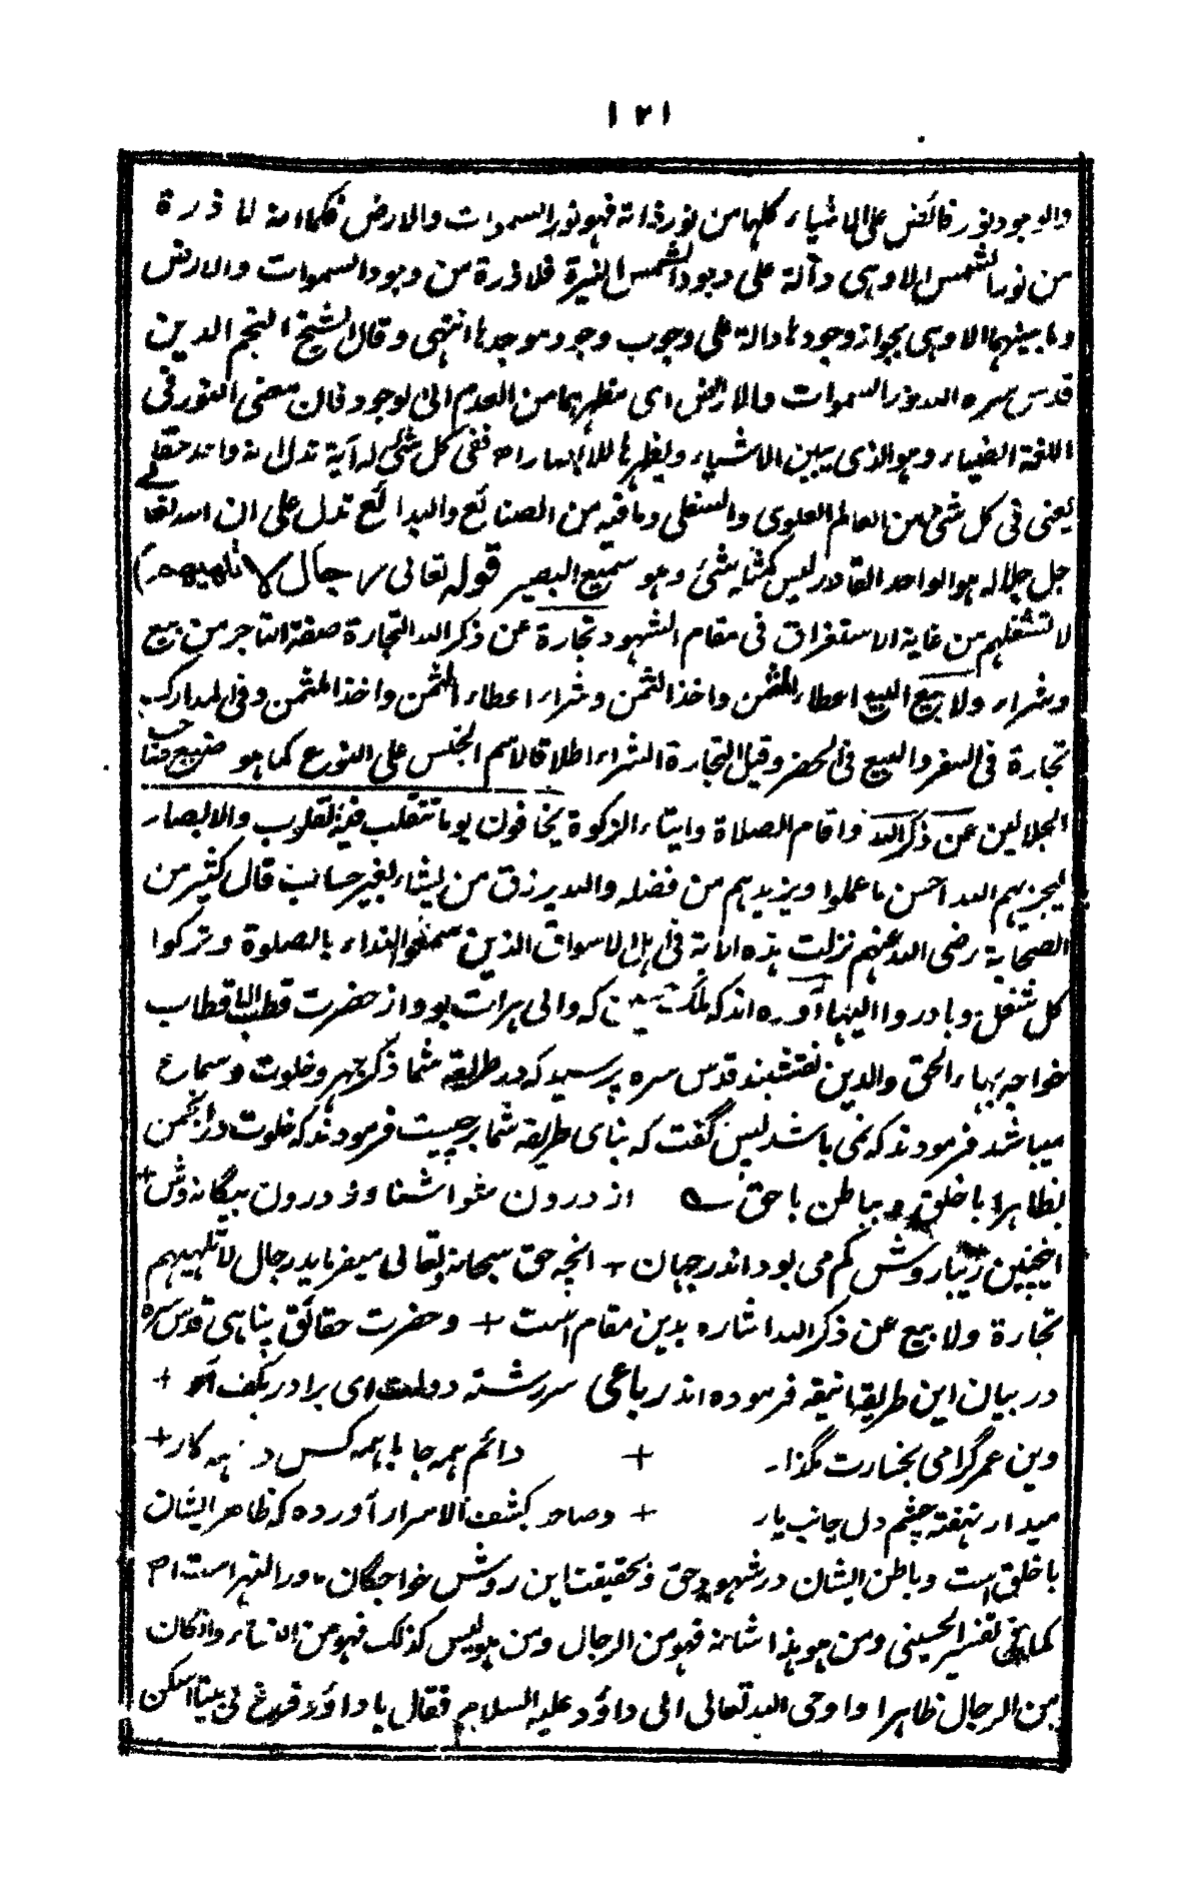 ١٢١
والوجود نور فائض على الاشياء كلها من نور ذاته فهو نور السموات والارض فكما انه لا ذرة
من نور الشمس الا وهى دالة على وجود الشمس النيرة فلا ذرة من وجود السموات والارض
وما بينهما الا وهى بجواز وجودها دالة على وجوب وجود موجدها انتهى وقال الشيخ النجم الدين
قدس سره الله نور السموات والارض اى مظهرهما من العدم الى الوجود فان معنى النور فى
اللغة الضياء وهو الذى يبين الاشياء ويظهرها للابصار اه ففى كل شئ له آية تدل انه واحد
يعنى فى كل شئ من العالم العلوى والسفلى وما فيه من الصنائع والبدائع تدل على ان الله تعالى
جل جلاله هو الواحد القادر ليس كمثله شئ وهو سميع البصير قوله تعالى رجال لا تلهيهم)
لا تشغلهم من غاية الاستغراق فى مقام الشهود تجارة عن ذكر الله التجارة صفة التاجر من بيع
وشراء ولا بيع البيع اعطاء المثمن واخذ الثمن وشراء اعطاء الثمن واخذ المثمن وفى المدارك
تجارة فى السفر والبيع فى الحضر وقيل التجارة الشراء اطلاقا لاسم الجنس على النوع كما هو صنيع صاحب
الجلالين عن ذكر الله واقام الصلاة وايتاء الزكوة يخافون يوما تتقلب فيه القلوب والابصار
ليجزيهم الله احسن ما عملوا ويزيدهم من فضله والله يرزق من يشاء بغير حساب قال كثير من
الصحابة رضى الله عنهم نزلت هذه الآية فى اهل الاسواق الذين سمعوا النداء بالصلوة وتركوا
كل شغل وبادروا اليها آورده اند كه ملك حسين كه والى هرات بود از حضرت قطب الاقطاب
خواجه بهاء الحق والدين نقشبند قدس سره پرسيد كه در طريقه شما ذكر جهر وخلوت وسماع
ميباشد فرمودند كه نمى باشد پس گفت كه بناى طريقه شما بر چيست فرمودند كه خلوت در انجمن
بظاهر با خلق و بباطن با حق ؎ از درون شو آشنا و از درون بيگانه وش +
اينچنين زيبا روش كم مى بود اندر جهان + انچه حق سبحانه وتعالى ميفرمايد رجال لا تلهيهم
تجارة ولا بيع عن ذكر الله اشاره بدين مقام است + و حضرت حقائق پناهى قدس سره
در بيان اين طريقه انيقه فرموده اند رباعى سررشته دولت اى برادر بكف آر +
وين عمر گرامى بخسارت مگذار + دائم همه جا با همه كس در همه كار +
ميدار نهفته چشم دل جانب يار + وصاحب كشف الاسرار آورده كه ظاهر ايشان
با خلق است و باطن ايشان در شهود حق و بحقيقت اين روش خواجگان ماوراء النهر است اه
كما فى تفسير الحسينى ومن هو هذا شانه فهو من الرجال ومن هو ليس كذلك فهو من النساء وان كان
من الرجال ظاهرا واوحى الله تعالى الى داؤد عليه السلام فقال يا داؤد فرغ لى بيتا اسكن